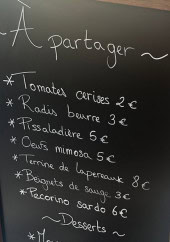 À partager ~
*Tomates cerises 2€
*Radis beurre 3€
*Pissaladière 5€
*Oeufs mimosa 5€
*Terrine de lapereaux 8€
*Beignets de sauge 3€
*Pecorino sardo 6€
~Desserts~